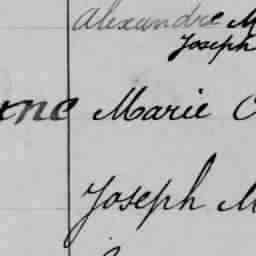 Alexandre M
Joseph
ne Marie
Joseph M